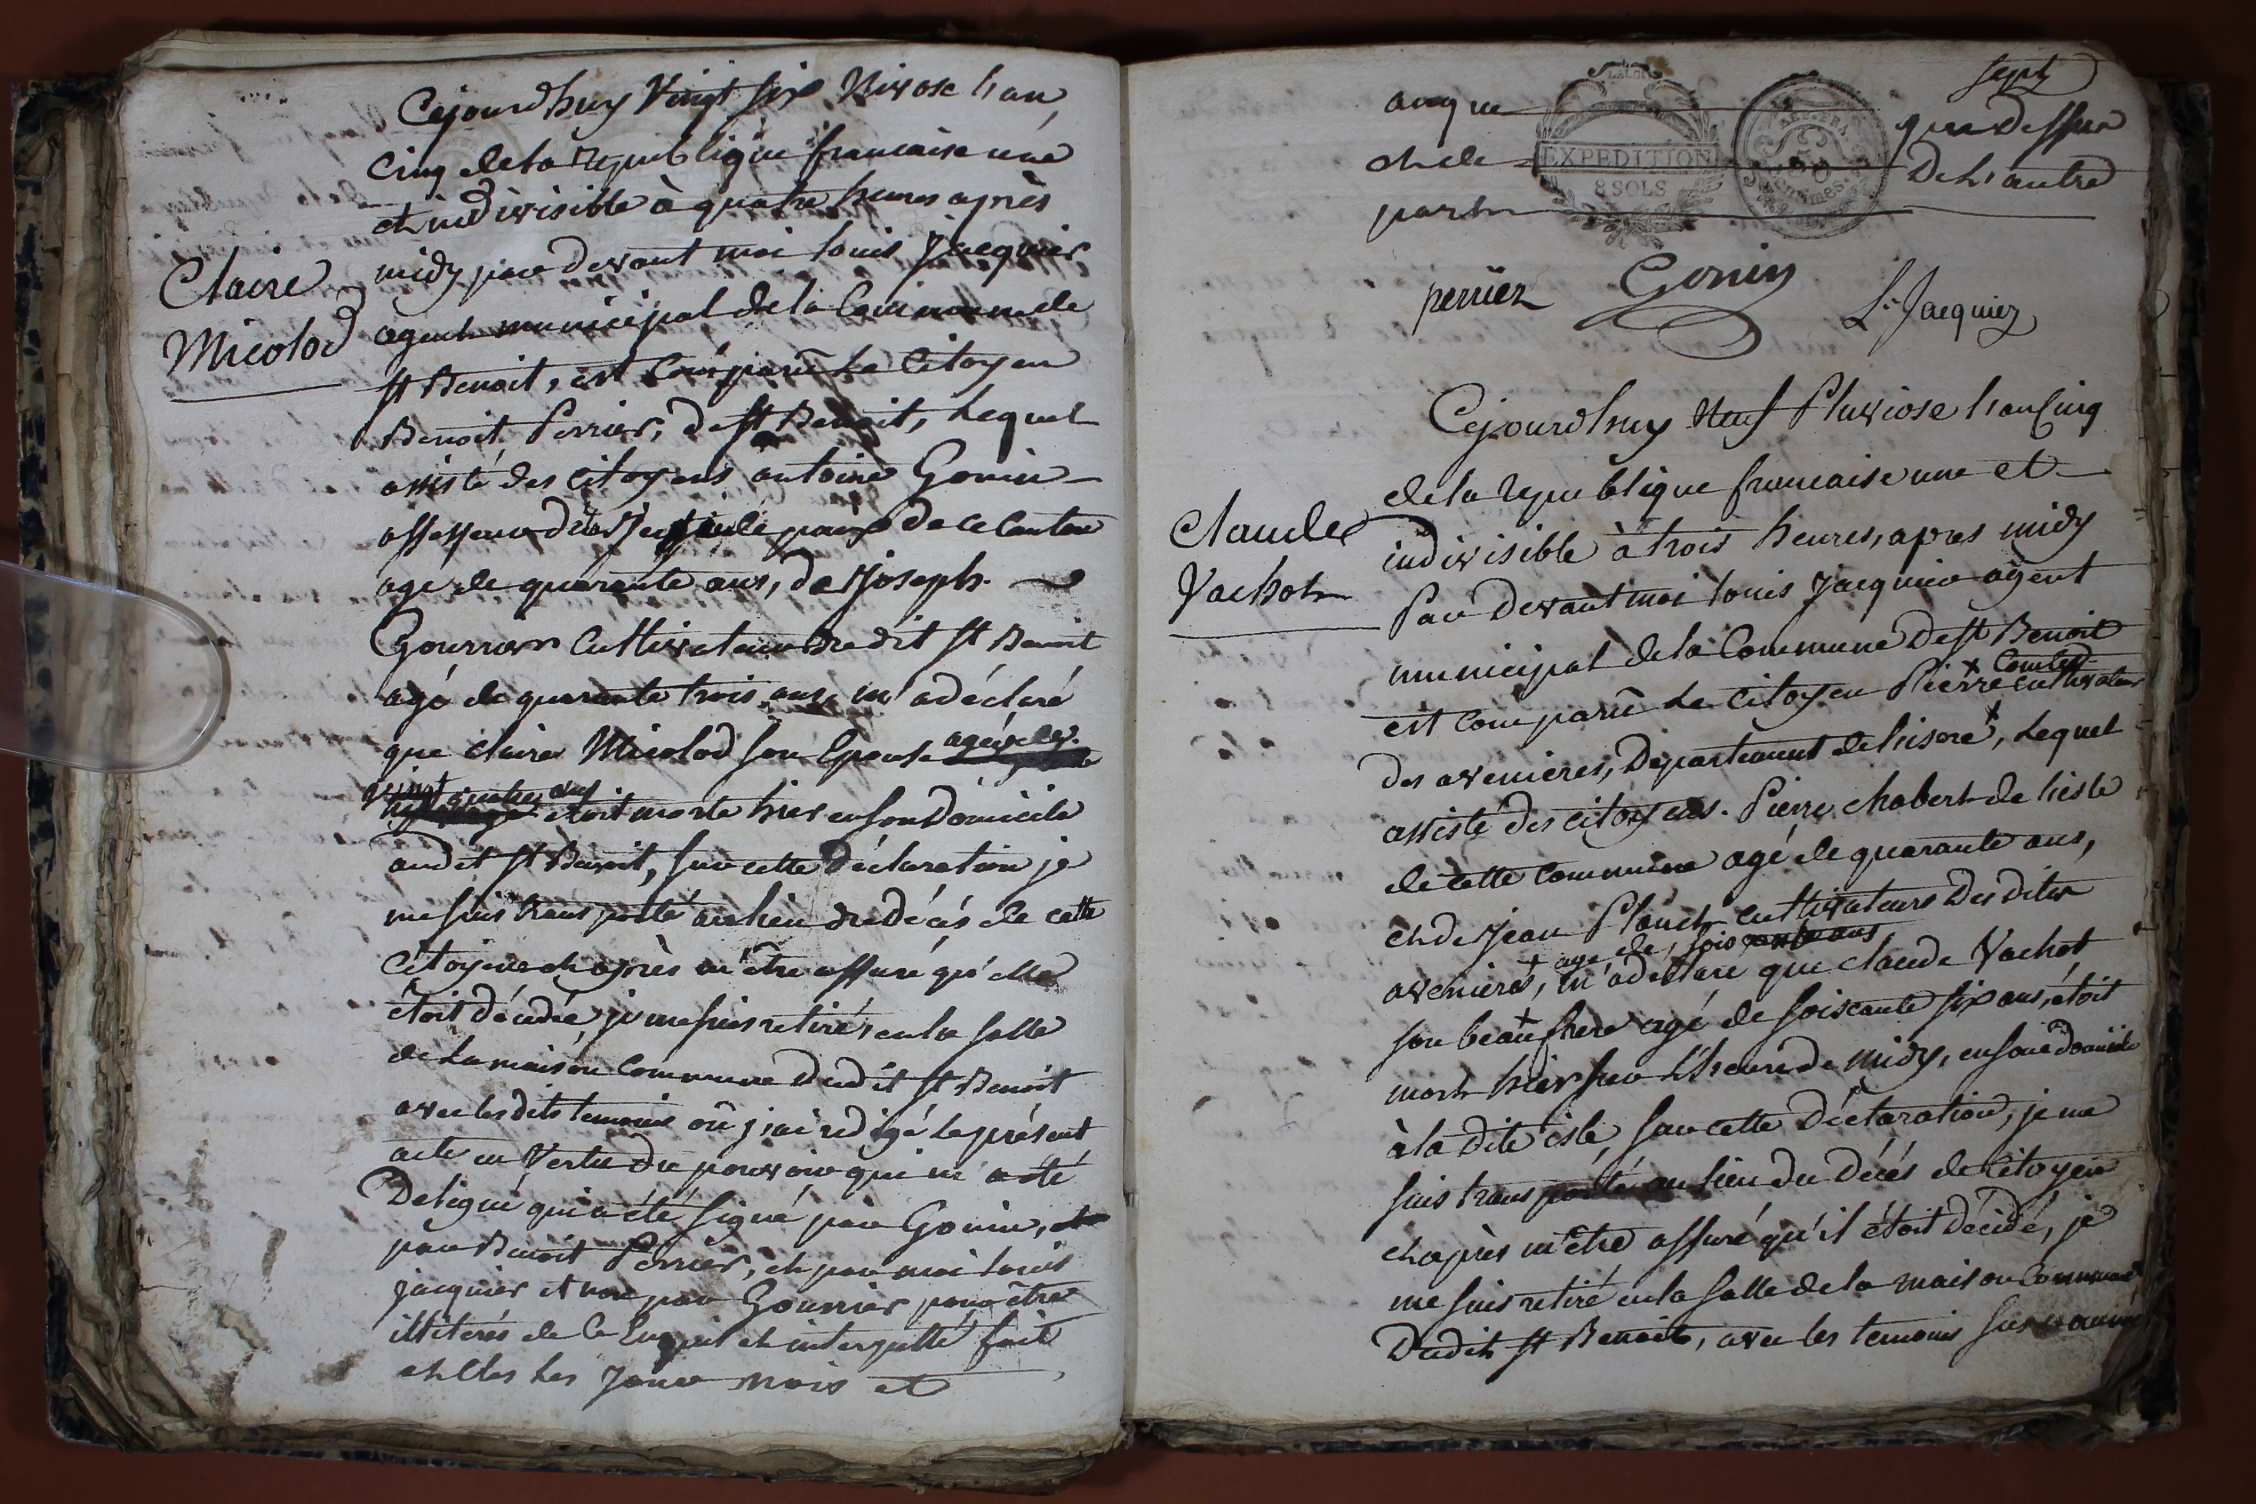 Claire
Micolod
Cejourdhuy Vingt six Nivose l'an
cinq de la republique francaise une
et indivisible à quatre heures après
midy par devant moi Louis Jacquier
agent municipal de la Commune de
st Benoit, est comparû Le Citoyen
Benoit Perrier, de st Benoit, Lequel
assisté des citoyens antoine Gonin
assesseur du de paix de ce Canton
age de quarante ans, de Joseph
Gourrier Cultivateur dudit st Benoit
agé de quarante trois ans m'a déclaré
que claire Micolod son Epouse agée de
vingt quatre ans étoit morte hier en son Domicile
audit st Benoit, sur cette déclaration je
me suis transporté au lieu du décés de cette
Citoyene et après m'être assuré qu'elle
étoit décédée, je me suis retiré, en la salle
de La maison Commune dudit st Benoit
avec les dits temoins où j'ai redigé Le présent
acte en Vertu du pouvoir qui m'a été
Delegué, qui a été signé par Gonin, et
par Benoit Perrier, et par moi Louis
Jacquier et non par Gourrier pour être
illiterés de Ce Enquit et interpellé fait
et Clos Les Jour mois et
sept
anque que dessus
et de De L'autre
part
LA LOI
EXPEDITION
8 SOLS
perrier Gonin L. Jacquier
Claude
Vachot
Cejourdhuy Neuf Pluviose l'an Cinq
de la republique francaise une et
indivisible à trois heures, apres midy
Par devant moi Louis Jacquier agent
municipal de la Commune de st Benoit
est comparû Le Citoyen Pierre + Comb cultivateur
des avenieres, Departement de l'isere, Lequel
assisté des citoyens Pierre chabert de l'isle
de cette commune agé de quarante ans,
et de Jean Planet cultivateurs des dites
avenieres, + age de soixante ans m'a déclaré que claude Vachot
son beaufrere agé de soiscante six ans, étoit
mort hier sur L'heure de midy, en son domicile
à la dite isle, sur cette Déclaration, je me
suis transporté au lieu du décés de Citoyen
et après m'être assuré qu'il étoit décédé, je
me suis retiré en la salle de la maison Commune
Dudit st Benoit, avec les temoins sus nommés